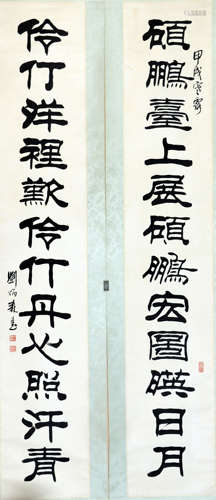 碩鵬臺上展碩鵬宏圖映日月
甲戌寒露
伶仃洋裡歎伶仃丹心照汗青
劉炳森書